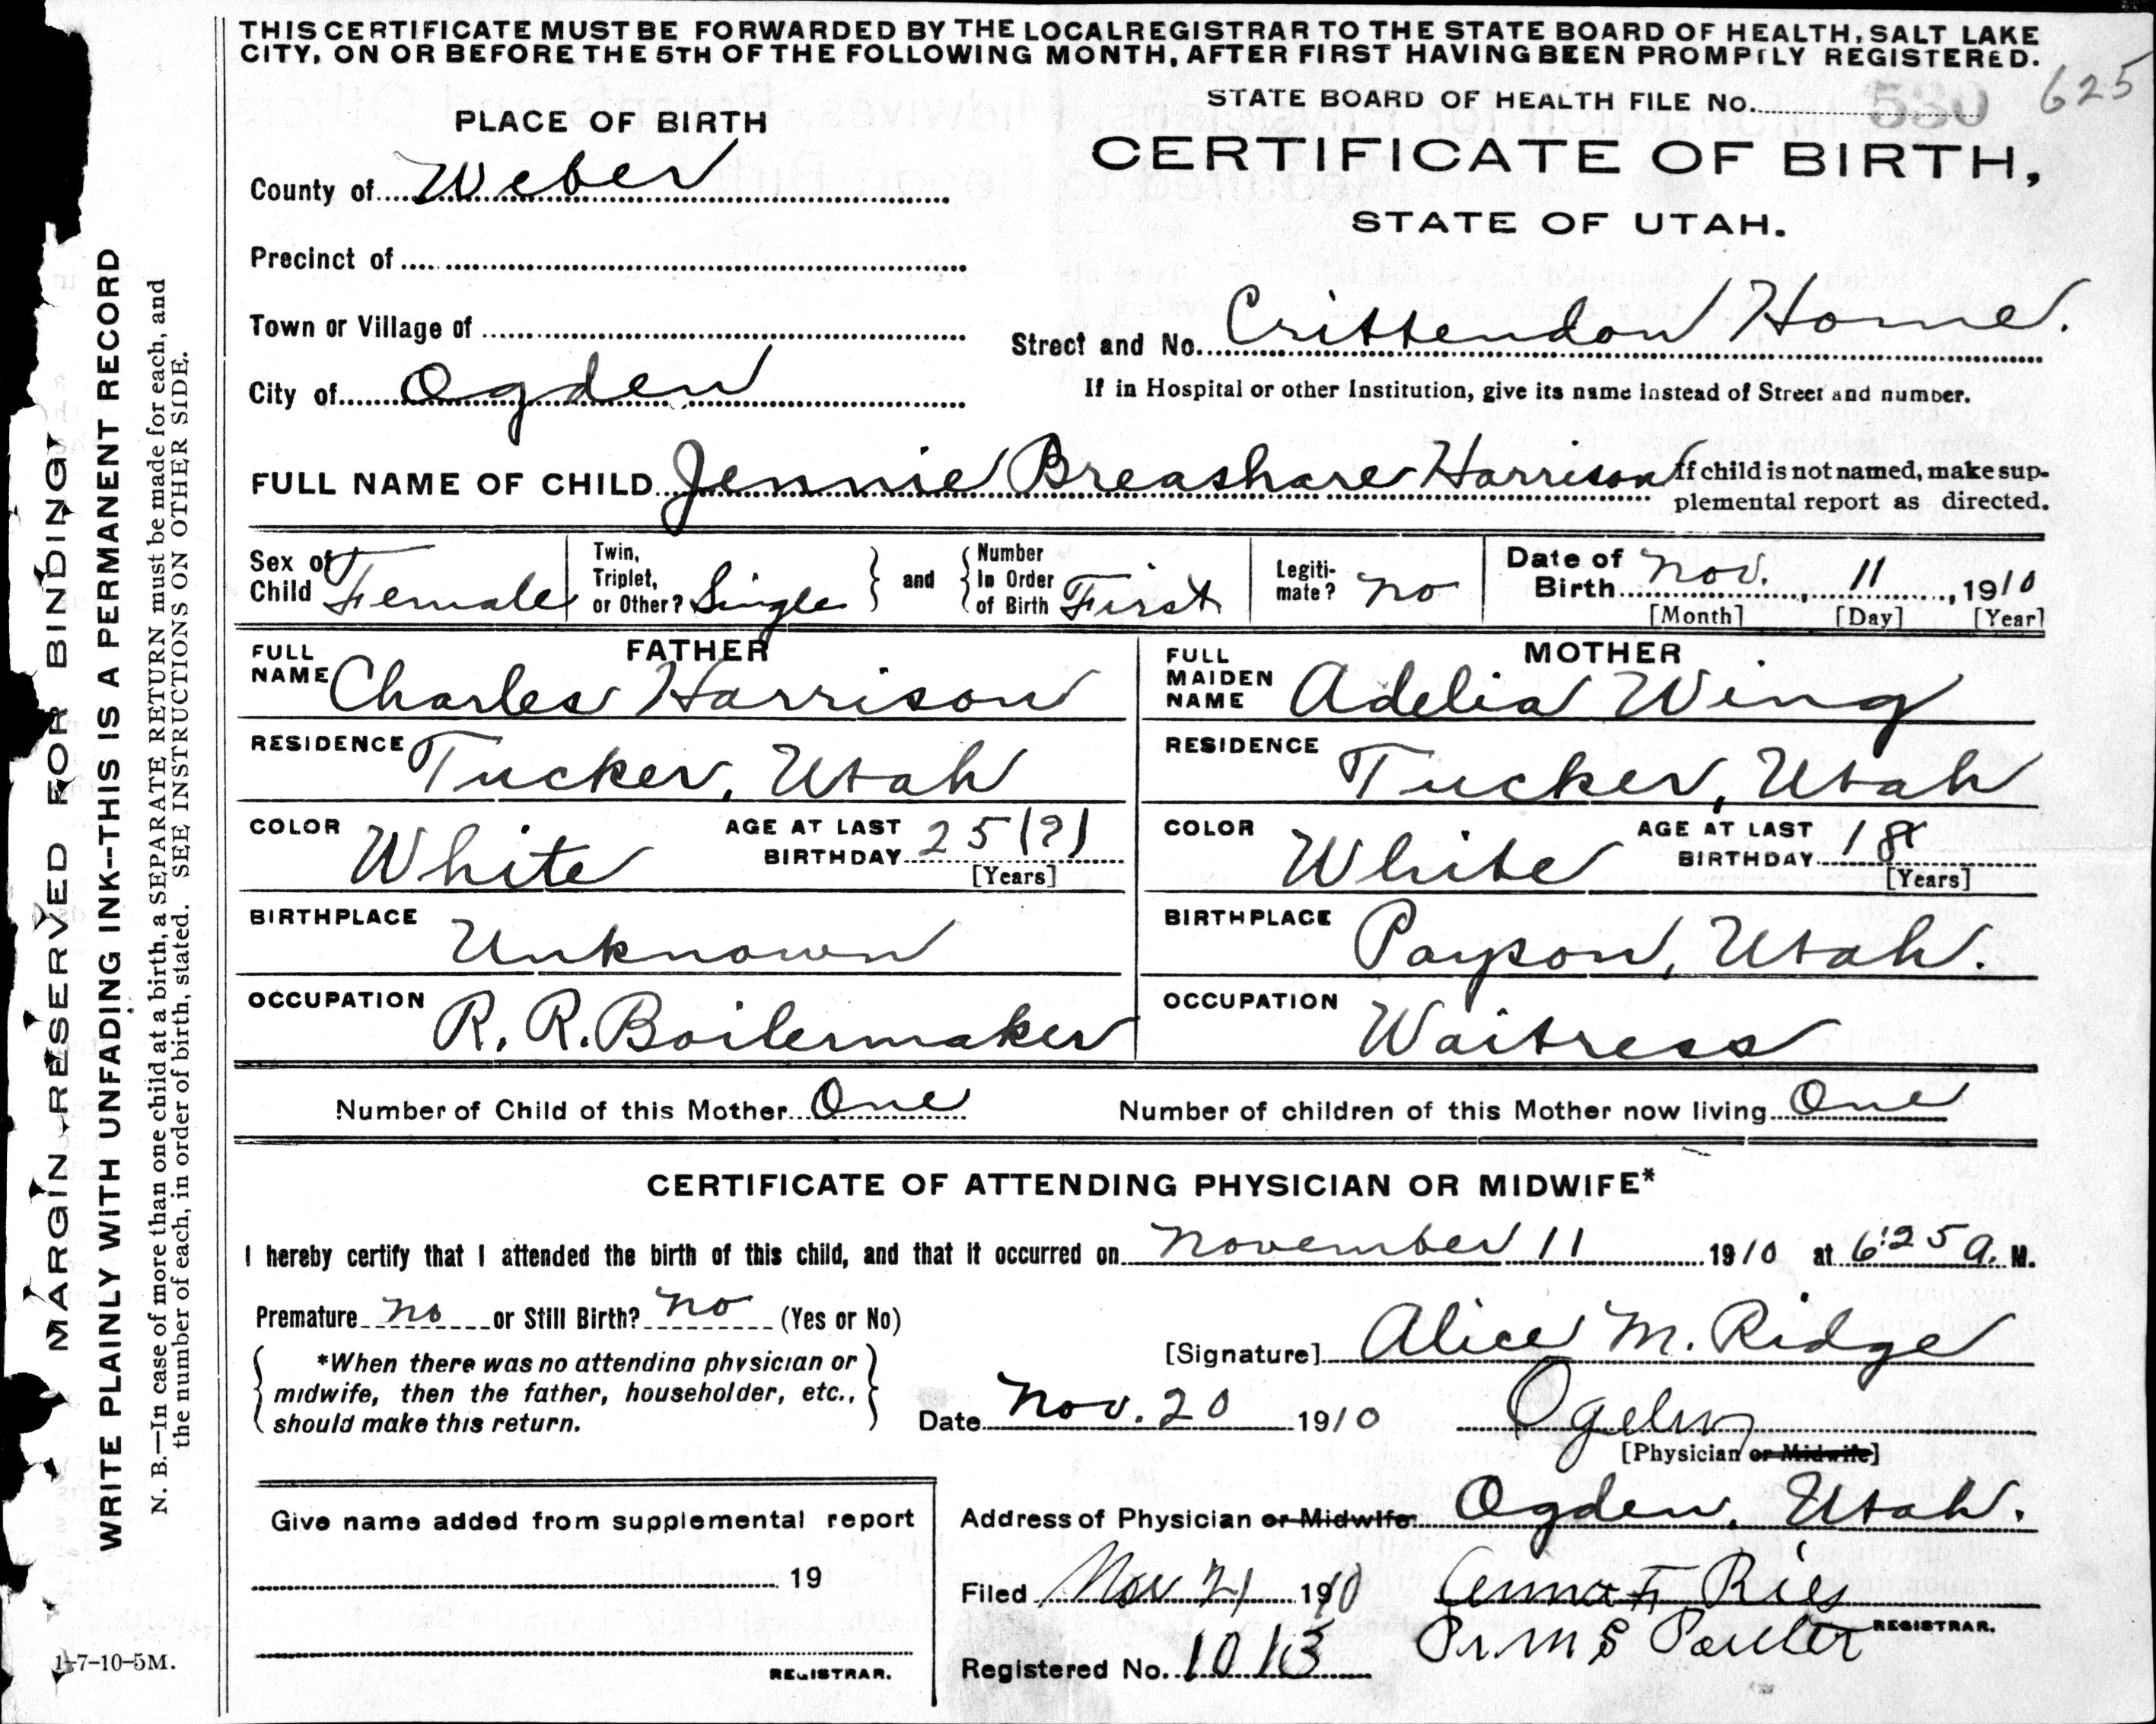 THIS CERTIFICATE MUST BE FORWARDED BY THE LOCAL REGISTRAR TO THE STATE BOARD OF HEALTH, SALT LAKE
CITY, ON OR BEFORE THE 5TH OF THE FOLLOWING MONTH, AFTER FIRST HAVING BEEN PROMPTLY REGISTERED.
625
STATE BOARD OF HEALTH FILE No. 530
PLACE OF BIRTH
CERTIFICATE OF BIRTH,
STATE OF UTAH.
County of Weber
Precinct of
Town or Village of
Street and No. Crittendon Home.
City of Ogden
If in Hospital or other Institution, give its name instead of Street and number.
FULL NAME OF CHILD Jennie Breashare Harrison
If child is not named, make sup-
plemental report as directed.
Sex of Child Female
Twin, Triplet, or Other? Single
and
Number In Order of Birth First
Legiti-mate? no
Date of Birth Nov. 11, 1910
[Month] [Day] [Year]
FATHER
FULL NAME Charles Harrison
RESIDENCE Tucker, Utah
COLOR White
AGE AT LAST BIRTHDAY 25(?)
[Years]
BIRTHPLACE Unknown
OCCUPATION R. R. Boilermaker
MOTHER
FULL MAIDEN NAME Adelia Wing
RESIDENCE Tucker, Utah
COLOR White
AGE AT LAST BIRTHDAY 18
[Years]
BIRTHPLACE Payson, Utah.
OCCUPATION Waitress
Number of Child of this Mother One
Number of children of this Mother now living One
CERTIFICATE OF ATTENDING PHYSICIAN OR MIDWIFE*
I hereby certify that I attended the birth of this child, and that it occurred on November 11 1910 at 6:25 a. M.
Premature no or Still Birth? no (Yes or No)
*When there was no attending physician or
midwife, then the father, householder, etc.,
should make this return.
[Signature] Alice M. Ridge
Date Nov. 20 1910 Ogden
[Physician or Midwife]
Address of Physician or Midwife Ogden, Utah.
Give name added from supplemental report
19
REGISTRAR.
Filed Nov 21 1910 Anna F. Ries
REGISTRAR.
Registered No. 1013
MARGIN RESERVED FOR BINDING
WRITE PLAINLY WITH UNFADING INK--THIS IS A PERMANENT RECORD
N. B.—In case of more than one child at a birth, a SEPARATE RETURN must be made for each, and
the number of each, in order of birth, stated. SEE INSTRUCTIONS ON OTHER SIDE.
1-7-10-5M.